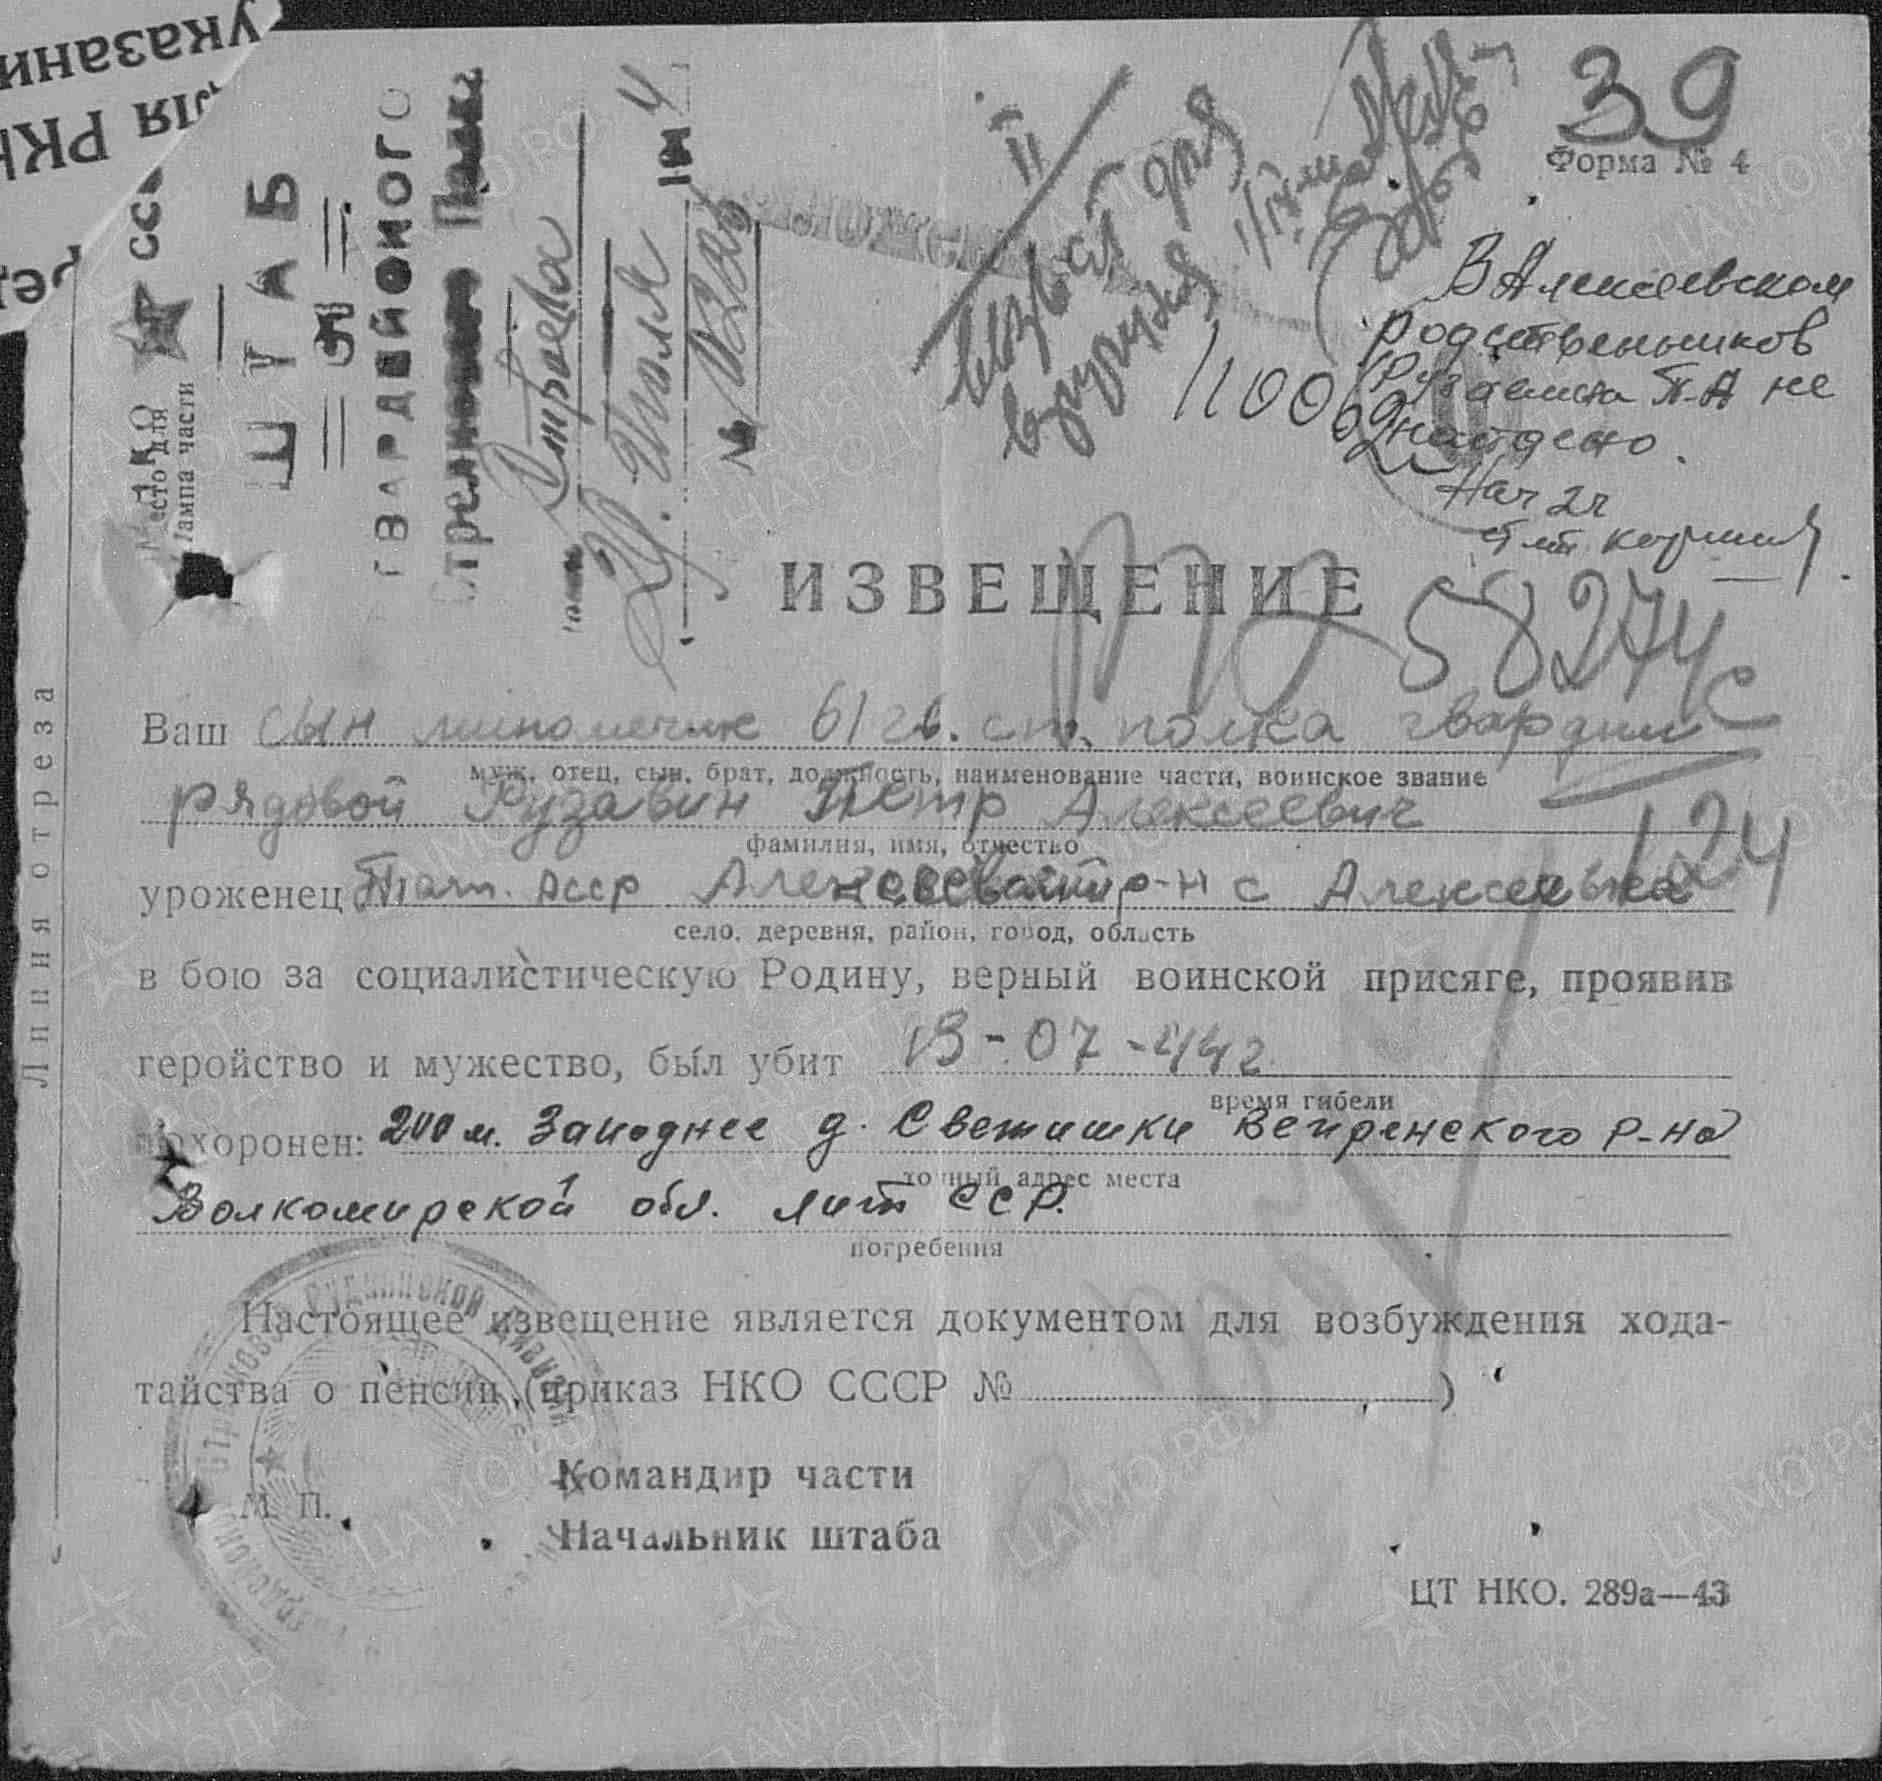 указани
для РКК
39
Форма № 4
СССР
НКО
Место для
штампа части
ШТАБ
ГВАРДЕЙСКОГО
Стрелкового Полка
Июля
194 4
№
II
для
вручения
110062
В Алексеевском
родственников
Рузавина П-А не
найдено.
Нач 2ч
ИЗВЕЩЕНИЕ
58274с
Линия отреза
Ваш сын минометчик 61 гв. сп. полка гвардии
муж, отец, сын, брат, должность, наименование части, воинское звание
рядовой Рузавин Петр Алексеевич
фамилия, имя, отчество
124
уроженец Тат. АССР Алексеевский р-н с Алексеевка
село, деревня, район, город, область
в бою за социалистическую Родину, верный воинской присяге, проявив
геройство и мужество, был убит 13-07-44г
время гибели
похоронен: 200 м. Западнее д. Светишки Вепренского р-на
точный адрес места
Волкомирской обл. Лит ССР.
погребения
Настоящее извещение является документом для возбуждения хода-
тайства о пенсии (приказ НКО СССР № )
М. П.
Командир части
Начальник штаба
ЦТ НКО. 289а—43